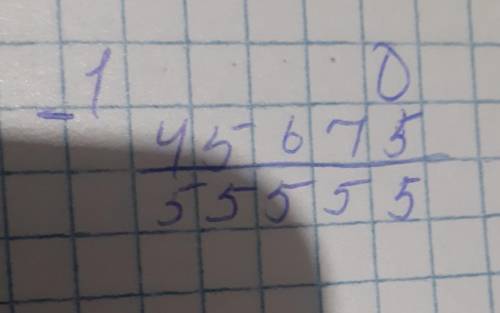 - 1 0
45675
55555